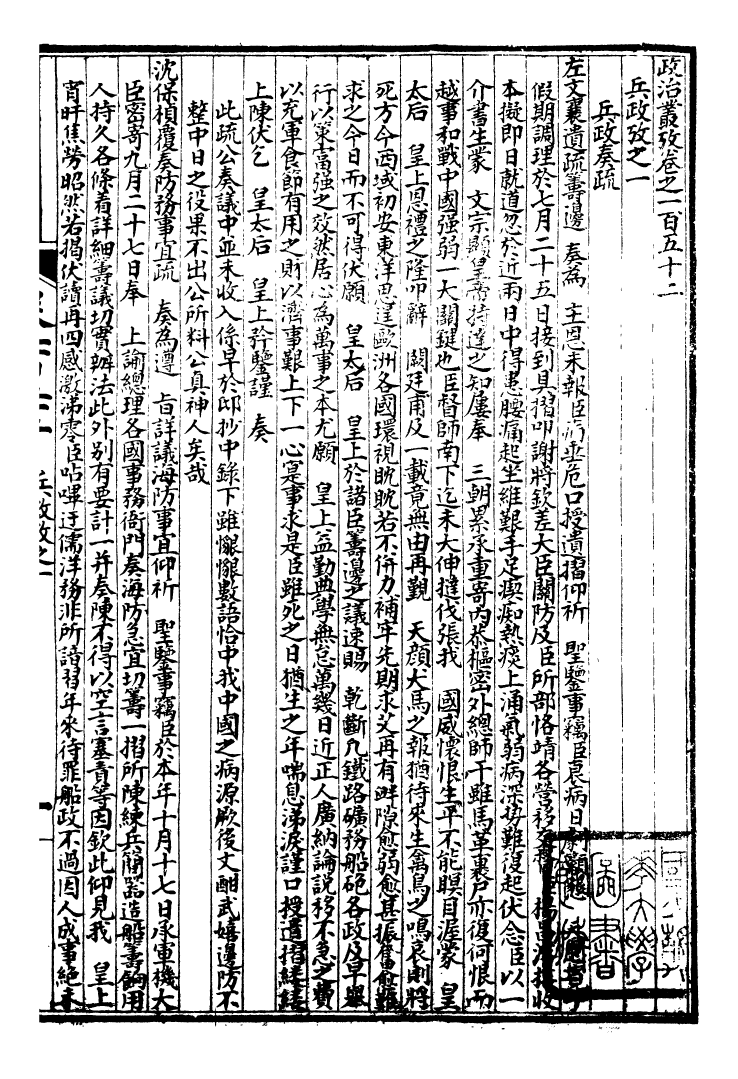 政治叢攷卷之一百五十二
兵政攷之一
兵政奏疏
左文襄遺疏籌邊　奏為　主恩未報臣病垂危口授遺摺仰祈　聖鑒事竊臣衰病日
假期調理於七月二十五日接到具摺叩謝將欽差大臣關防及臣所部恪靖各營移交
本擬即日就道忽於近兩日中得患腰痛起坐維艱手足瘈痴熱痰上涌氣弱病深勢難復起伏念臣以一
介書生蒙　文宗顯皇帝特達之知屢奉　三朝累承重寄內恭樞密外總師干雖馬革裹尸亦復何恨而
越事和戰中國强弱一大關鍵也臣督師南下迄未大伸撻伐張我　國威懷恨生平不能瞑目渥蒙　皇
太后　皇上恩禮之隆叩辭　闕廷甫及一載竟無由再覲　天顏犬馬之報猶待來生禽鳥之鳴哀則將
死方今西域初安東洋思逞歐洲各國環視眈眈若不併力補牢先期求艾再有衅隙愈弱愈甚振奮愈難
求之今日而不可得伏願　皇太后　皇上於諸臣籌邊之議速賜　乾斷凡鐵路礦務船砲各政及早舉
行以策富强之效然居心為萬事之本尤願　皇上益勤典學無怠萬幾日近正人廣納論說移不急之費
以充軍食節有用之財以濟事艱上下一心寔事求是臣雖死之日猶生之年喘息涕淚謹口授遺摺縷縷
上陳伏乞　皇太后　皇上矜鑒謹　奏
此疏公奏議中並未收入係早於邸抄中錄下雖懨懨數語恰中我中國之病源厥後文酣武嬉邊防不
整中日之役果不出公所料公真神人矣哉
沈保楨覆奏防務事宜疏　奏為遵　旨詳議海防事宜仰祈　聖鑒事竊臣於本年十月十七日承軍機大
臣密寄九月二十七日奉　上諭總理各國事務衙門奏海防急宜切籌一摺所陳練兵簡器造船籌餉用
人持久各條着詳細籌議切實辦法此外別有要計一并奏陳不得以空言塞責等因欽此仰見我　皇上
宵旰焦勞昭然若揭伏讀再四感激涕零臣呫嗶迂儒洋務非所諳習年來待罪船政不過因人成事絕未
兵政攷之一